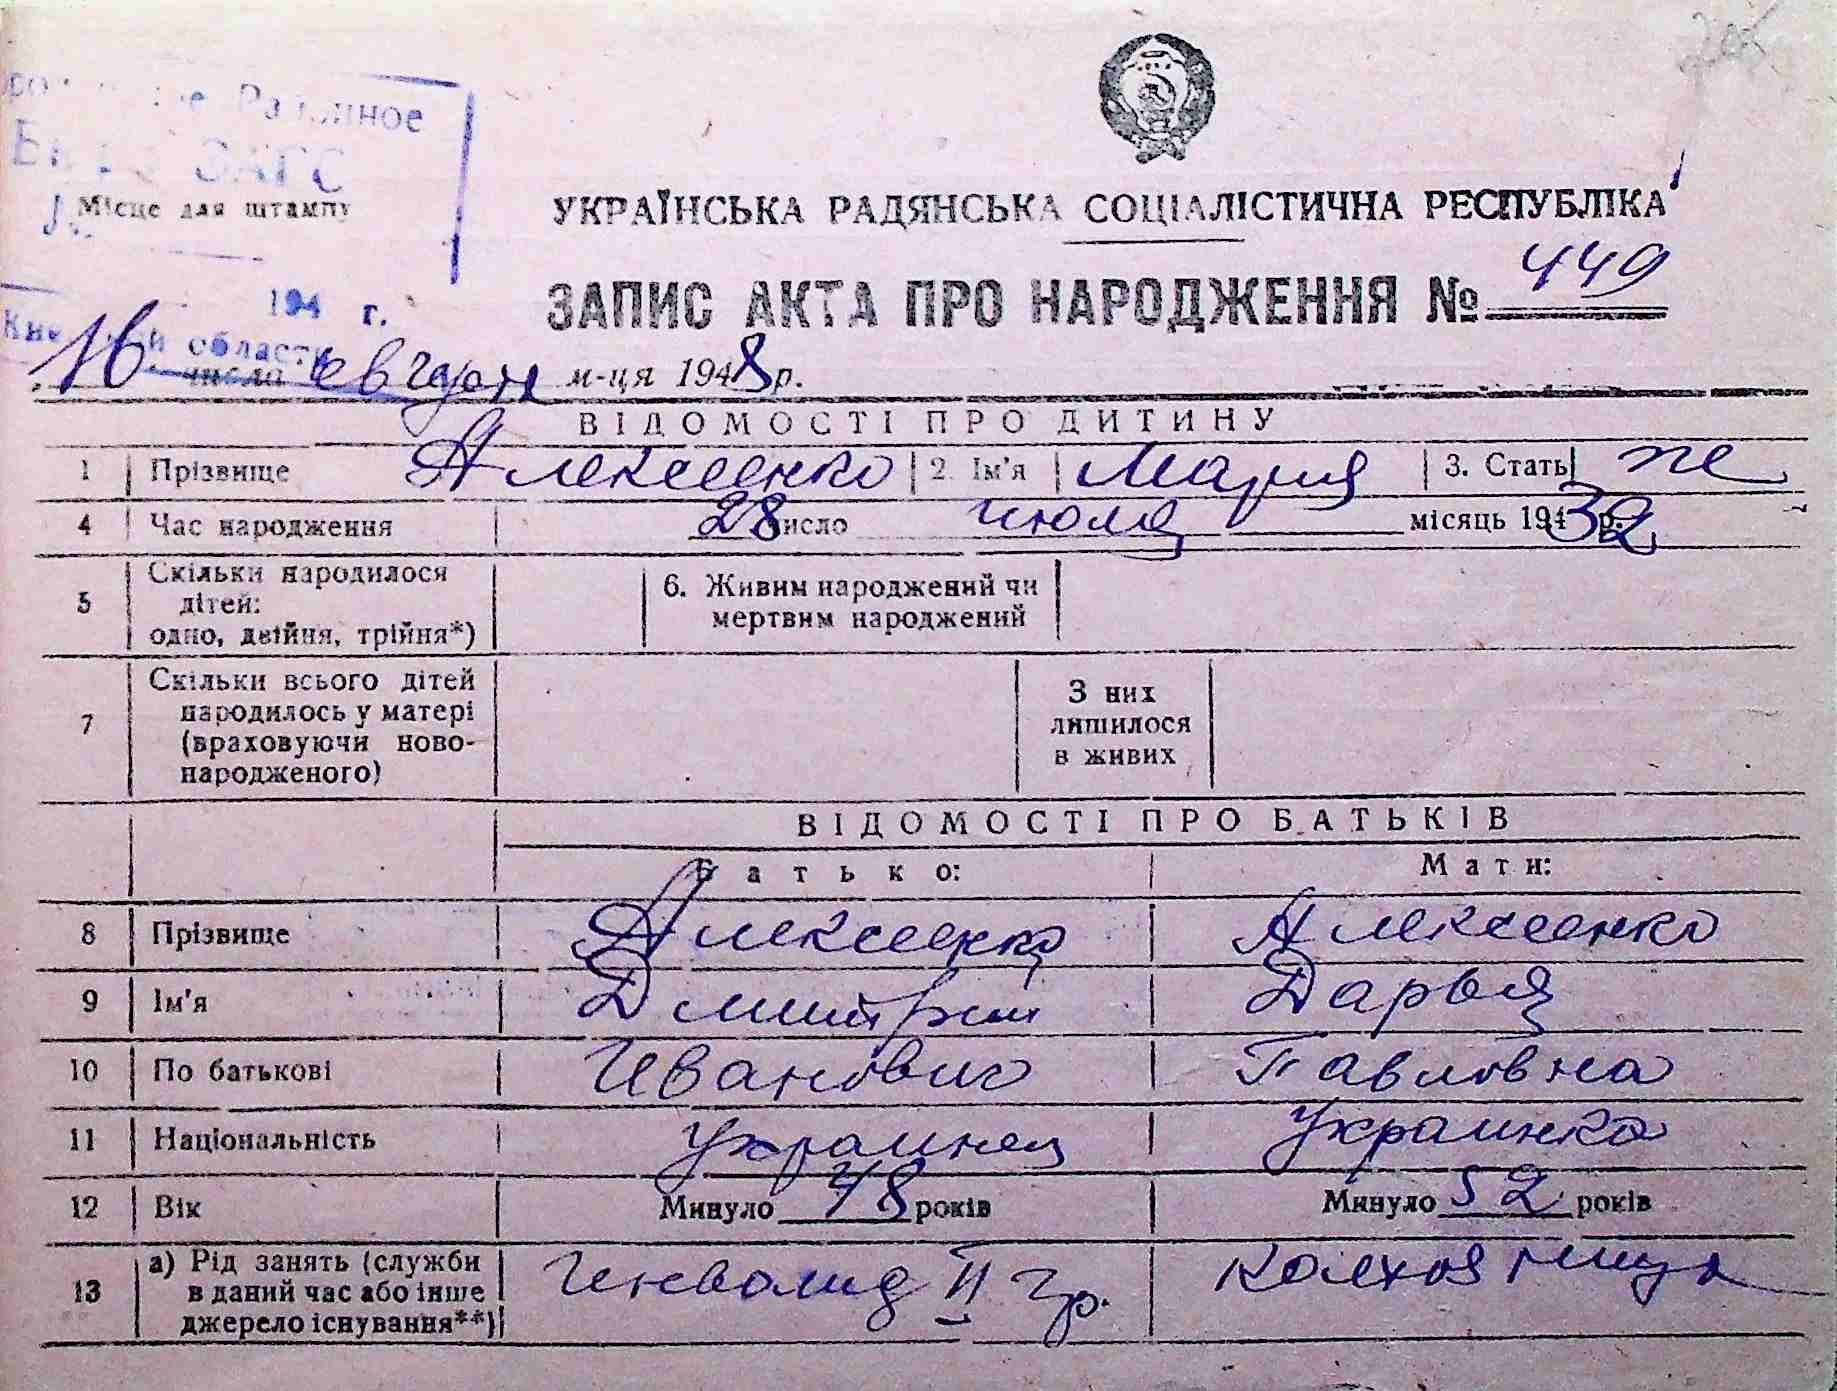 Районное
ЗАГС
Місце для штампу
УКРАЇНСЬКА РАДЯНСЬКА СОЦІАЛІСТИЧНА РЕСПУБЛІКА
ЗАПИС АКТА ПРО НАРОДЖЕННЯ № 449
194 г.
области
16 число января м-ця 1948 р.
ВІДОМОСТІ ПРО ДИТИНУ
1 Прізвище Алексеенко 2. Ім'я Мария 3. Стать же
4 Час народження 28 число июля місяць 1932 р.
5 Скільки народилося дітей: одно, двійня, трійня*) 6. Живим народжений чи мертвим народжений
7 Скільки всього дітей народилось у матері (враховуючи новонародженого) З них лишилося в живих
ВІДОМОСТІ ПРО БАТЬКІВ
Батько: Мати:
8 Прізвище Алексеенко Алексеенко
9 Ім'я Дмитрий Дарья
10 По батькові Иванович Павловна
11 Національність Украинец Украинка
12 Вік Минуло 48 років Минуло 52 років
13 а) Рід занять (служби в даний час або інше джерело існування**) Инвалид II гр. Колхозница